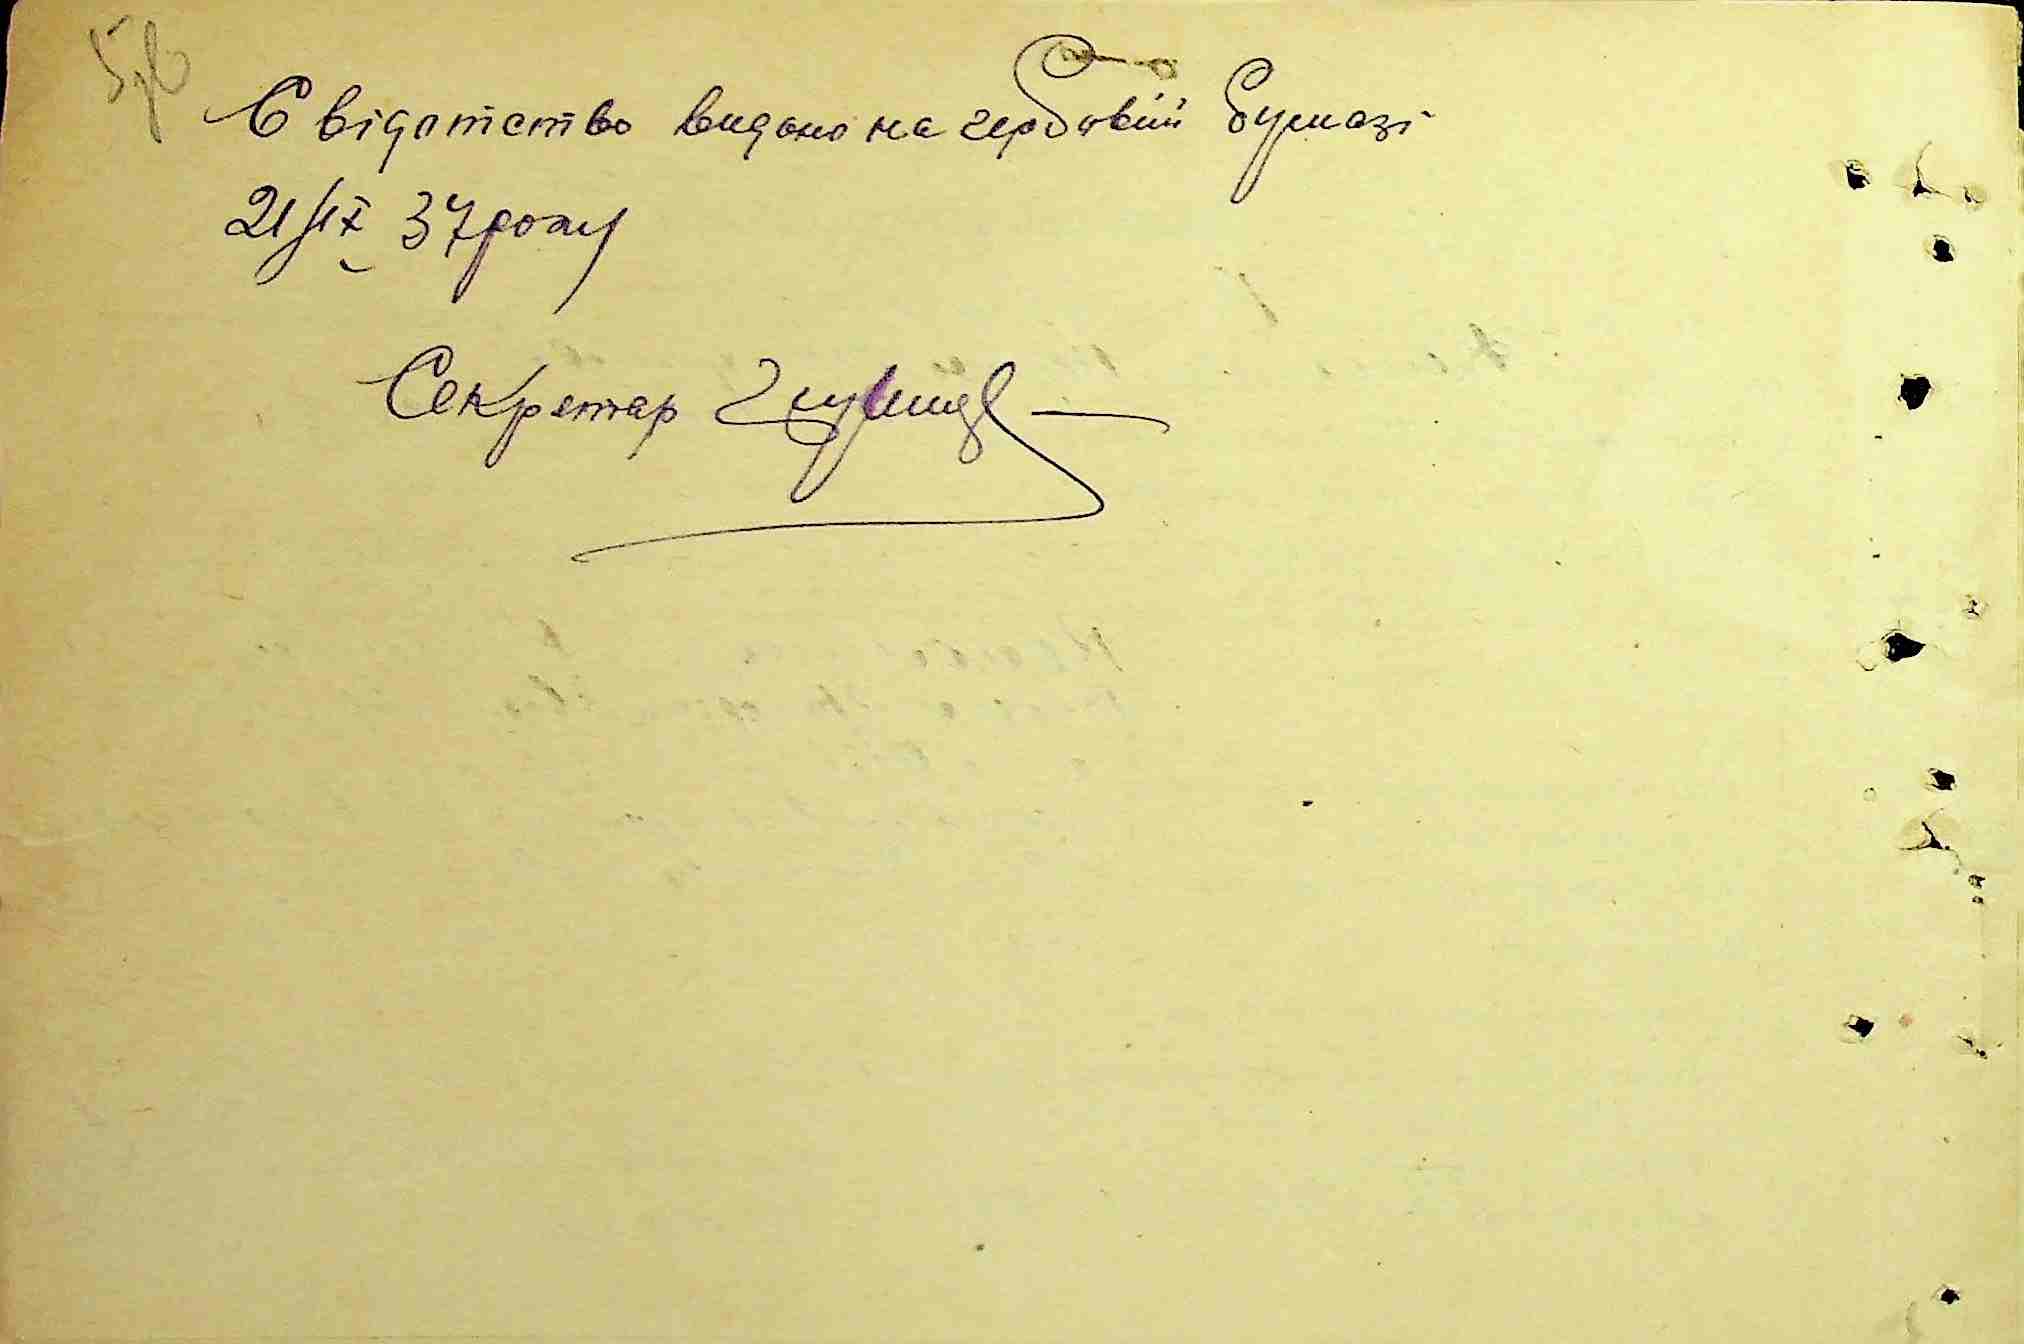 Свідотство видано на гербовій бумазі
21/IX 37 року
Секретар